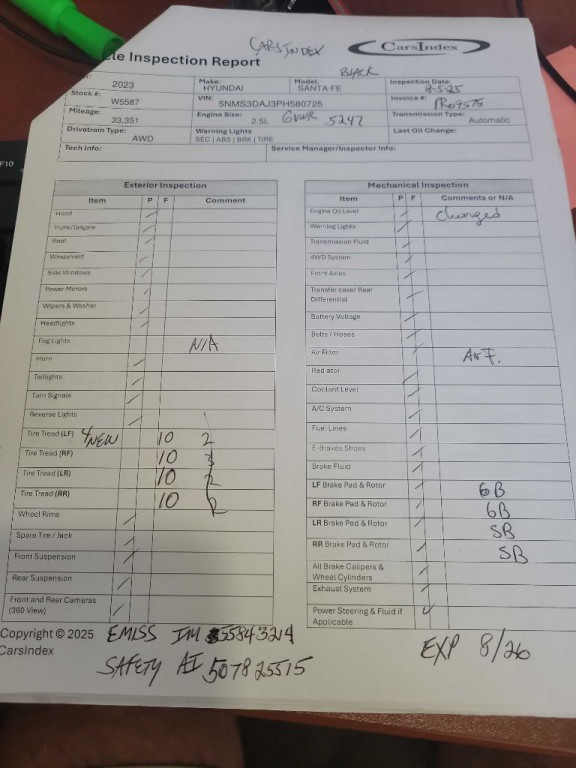 CARSINDEX
CarsIndex
cle Inspection Report
BLACK
2023
Make: HYUNDAI
Model: SANTA FE
Inspection Date: 8-5-25
Stock #: W5587
VIN: 5NMS3DAJ3PH580725
Invoice #:
Mileage: 33,351
Engine Size: 2.5L GVWR 5247
Transmission Type: Automatic
Drivetrain Type: AWD
Warning Lights SEC | ABS | BRK | TIRE
Last Oil Change:
Tech Info:
Service Manager/Inspector Info:
Exterior Inspection
Item P F Comment
Hood
Trunk/Tailgate
Roof
Windshield
Side Windows
Power Mirrors
Wipers & Washer
Headlights
Fog Lights N/A
Horn
Taillights
Turn Signals
Reverse Lights
Tire Tread (LF) 4 NEW 10 2
Tire Tread (RF) 10
Tire Tread (LR) 10 2
Tire Tread (RR) 10 2
Wheel Rims
Spare Tire / Jack
Front Suspension
Rear Suspension
Front and Rear Cameras
(360 View)
Mechanical Inspection
Item P F Comments or N/A
Engine Oil Level changed
Warning Lights
Transmission Fluid
4WD System
Front Axles
Transfer case/ Rear
Differential
Battery Voltage
Belts / Hoses
Air Filter Air F.
Radiator
Coolant Level
A/C System
Fuel Lines
E-Brakes Shoes
Brake Fluid
LF Brake Pad & Rotor 6B
RF Brake Pad & Rotor 6B
LR Brake Pad & Rotor 5B
RR Brake Pad & Rotor 5B
All Brake Calipers &
Wheel Cylinders
Exhaust System
Power Steering & Fluid if
Applicable
Copyright © 2025
CarsIndex
EMISS IM 55843214
SAFETY AI 507825515
EXP 8/26
F10